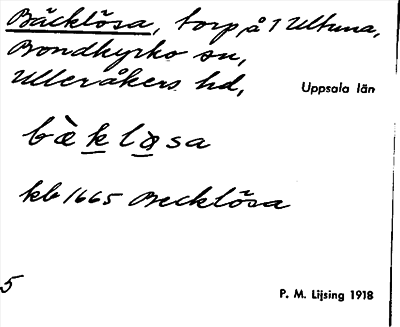 Bäcklösa, torp å 1 Ultuna,
Bondkyrko sn,
Ulleråkers hd,
Uppsala län
bὲkḷəsa
kb 1665 Becklösa
5
P. M. Lijsing 1918